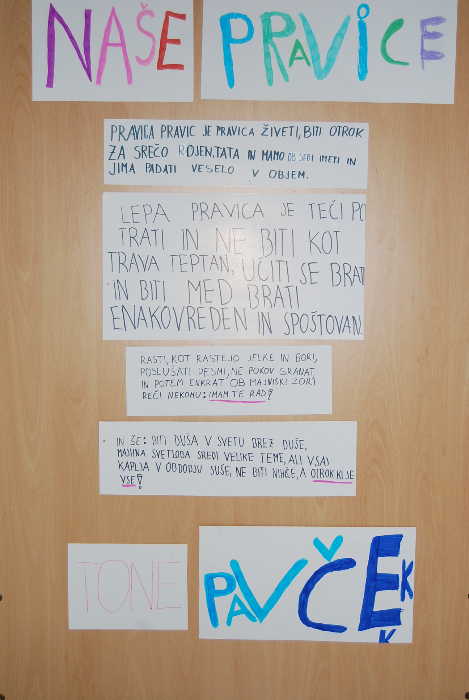 NAŠE PRAVICE
PRAVICA PRAVIC JE PRAVICA ŽIVETI, BITI OTROK
ZA SREČO ROJEN, TATA IN MAMO OB SEBI IMETI IN
JIMA PADATI VESELO V OBJEM.
LEPA PRAVICA JE TEČI PO
TRATI IN NE BITI KOT
TRAVA TEPTAN, UČITI SE BRATI
IN BITI MED BRATI
ENAKOVREDEN IN SPOŠTOVAN.
RASTI, KOT RASTEJO JELKE IN BORI,
POSLUŠATI PESMI, NE POKOV GRANAT,
IN POTEM ENKRAT OB MAJNIŠKI ZORI
REČI NEKOMU: IMAM TE RAD!
IN ŠE: BITI DUŠA V SVETU BREZ DUŠE,
MAJHNA SVETLOBA SREDI VELIKE TEME, ALI VSAJ
KAPLJA V OBDOBJU SUŠE, NE BITI NIHČE, A OTROK KI JE
VSE!
TONE PAVČEK